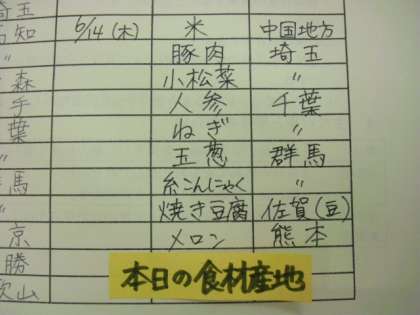 埼玉
高知 6/14(木) 米 中国地方
〃 豚肉 埼玉
森 小松菜 〃
手 人参 千葉
葉 ねぎ 〃
〃 玉葱 群馬
馬 糸こんにゃく 〃
〃 焼き豆腐 佐賀(豆)
京 メロン 熊本
勝
歌山
本日の食材産地